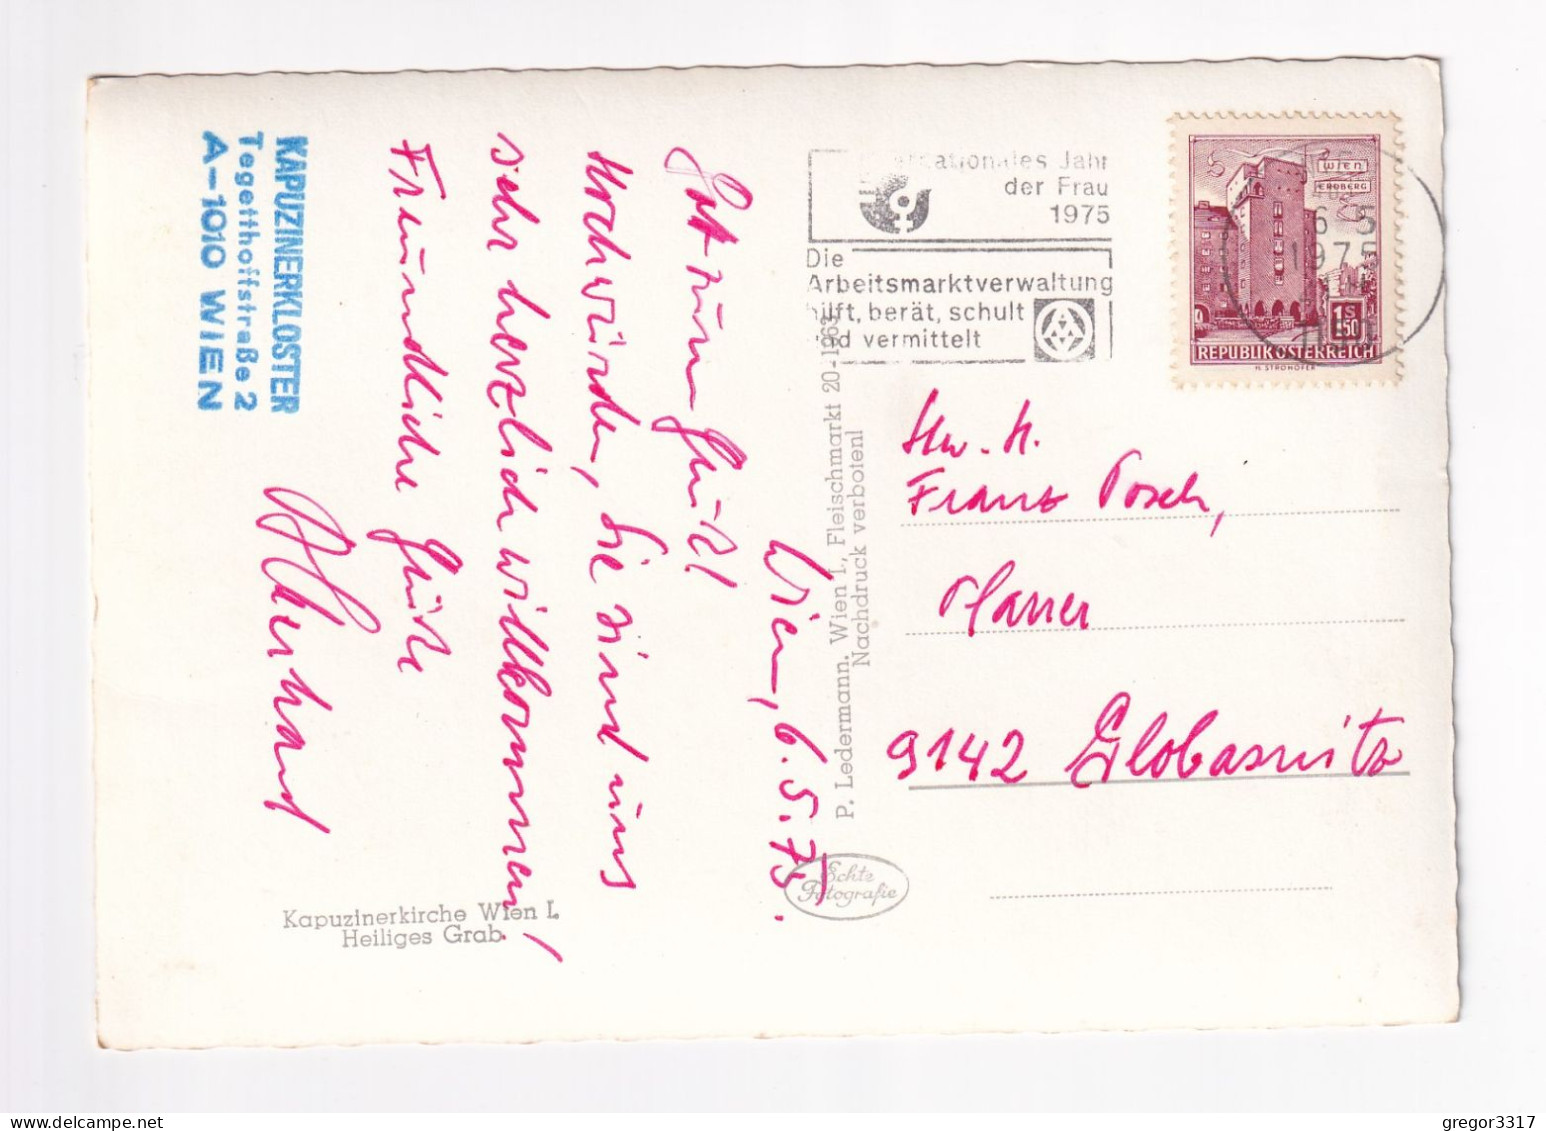 KAPUZINERKLOSTER
Tegetthoffstraße 2
A-1010 WIEN
Wien, 6.5.75.
Gott zum Gruß!
Hochwürden, Sie sind uns
sehr herzlich willkommen!
Freundliche Grüße
Kapuzinerkirche Wien I.
Heiliges Grab
P. Ledermann, Wien I., Fleischmarkt 20-1963
Nachdruck verboten!
Echte
Fotografie
Internationales Jahr
der Frau
1975
Die
Arbeitsmarktverwaltung
hilft, berät, schult
und vermittelt
WIEN
ERDBERG
6 5
1975
1 S
50
REPUBLIK ÖSTERREICH
H. STROHOFER
1150
Hw. H.
Franz Posch,
Pfarrer
9142 Globasnitz
gregor3317